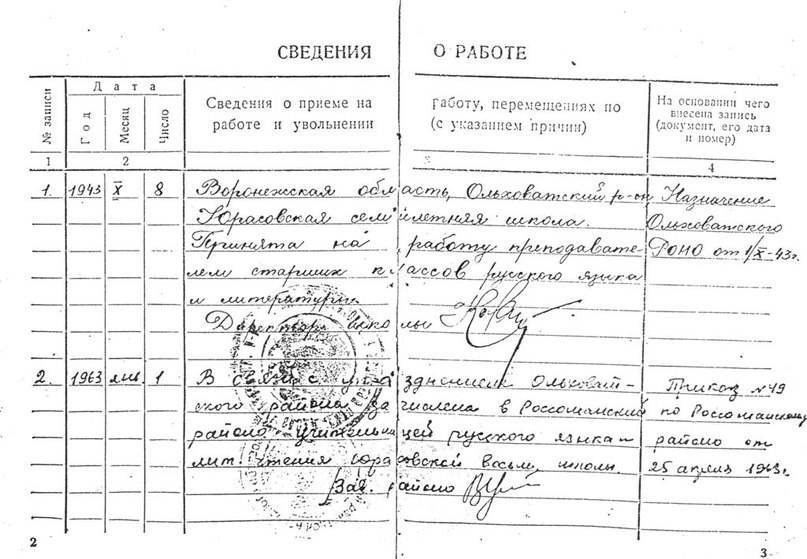 СВЕДЕНИЯ О РАБОТЕ
№ записи
Дата
Год
Месяц
Число
Сведения о приеме на работу, перемещениях по
работе и увольнении (с указанием причин)
На основании чего
внесена запись
(документ, его дата
и номер)
1 2 3 4
1. 1943 X 8 Воронежская область, Ольховатский р-он Назначение
Юрасовская семилетняя школа. Ольховатского
Принята на работу преподавате- РОНО от 1/X-43г.
лем старших классов русского языка
и литературы.
Директор школы
2. 1963 янв. 1 В связи с упразднением Ольховат- Приказ №49
ского района зачислена в Россошанский по Россошанскому
районо учительницей русского языка и районо от
лит. чтения Юрасовской восьм. школы. 25 апреля 1963г.
Зав. районо
2
3